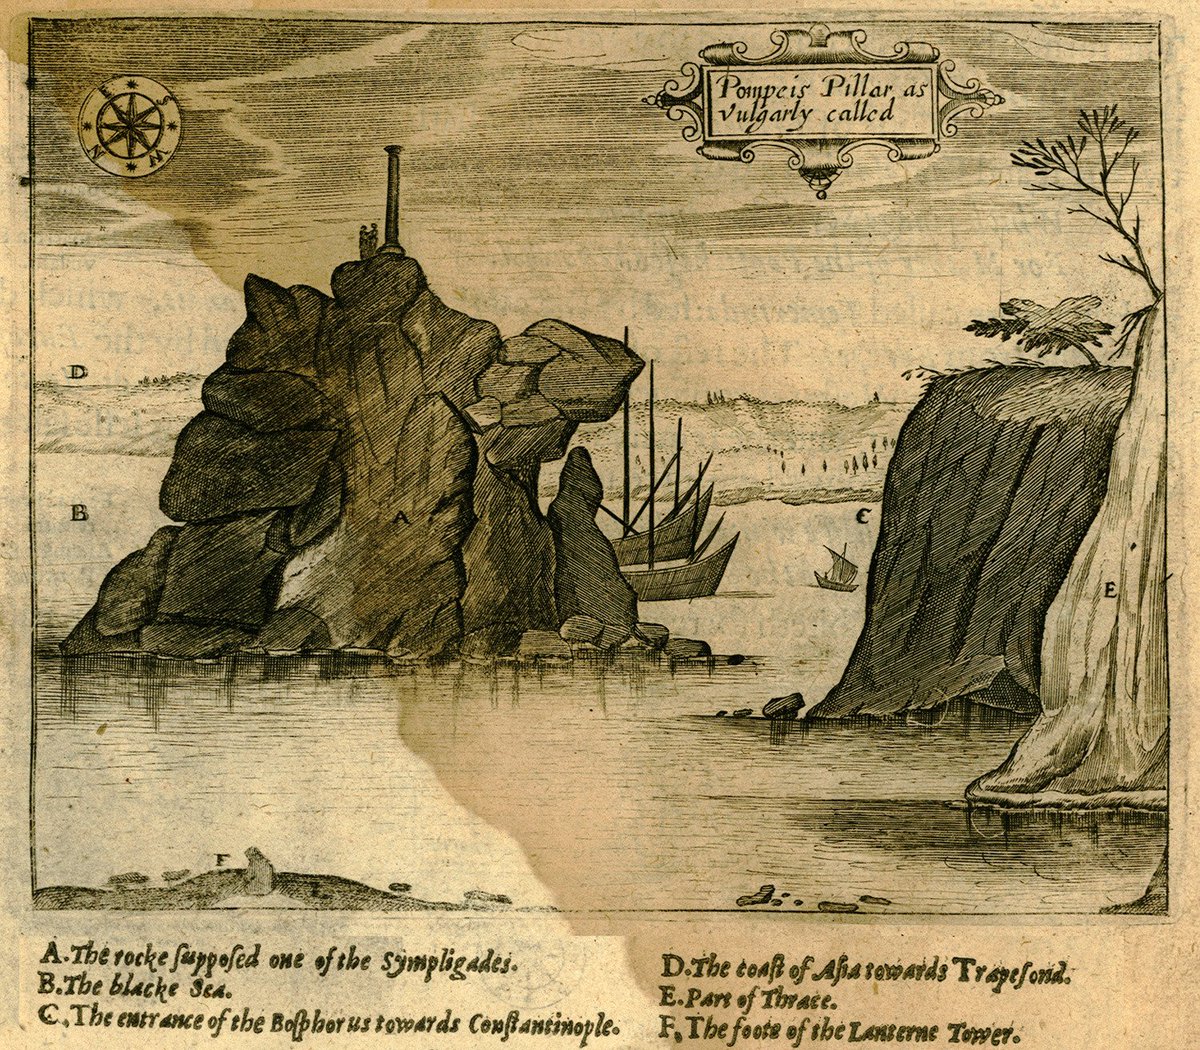 Pompeis Pillar, as
vulgarly called
E
S
N
W
D
B
A
C
E
F
A. The rocke ſuppoſed one of the Sympligades.
B. The blacke Sea.
C. The entrance of the Boſphorus towards Conſtantinople.
D. The coaſt of Aſia towards Trapeſond.
E. Part of Thrace.
F. The foote of the Lanterne Tower.